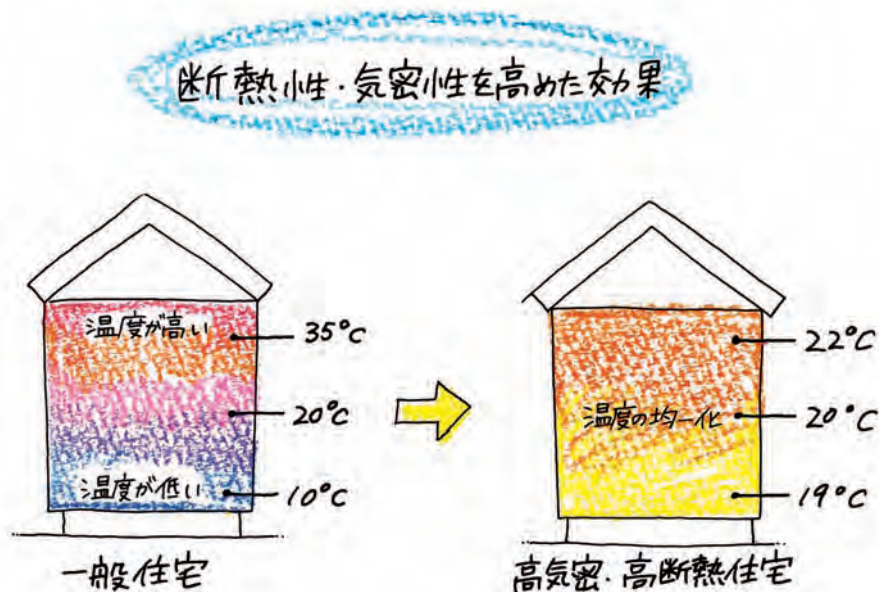 断熱性・気密性を高めた効果
温度が高い
35°C
20°C
温度が低い
10°C
一般住宅
22°C
温度の均一化
20°C
19°C
高気密・高断熱住宅